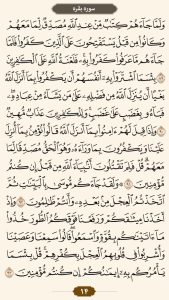 سوره بقره
وَلَمَّا جَاءَهُمْ كِتَابٌ مِنْ عِنْدِ اللَّهِ مُصَدِّقٌ لِمَا مَعَهُمْ
وَكَانُوا مِنْ قَبْلُ يَسْتَفْتِحُونَ عَلَى الَّذِينَ كَفَرُوا فَلَمَّا
جَاءَهُمْ مَا عَرَفُوا كَفَرُوا بِهِ فَلَعْنَةُ اللَّهِ عَلَى الْكَافِرِينَ
بِئْسَمَا اشْتَرَوْا بِهِ أَنْفُسَهُمْ أَنْ يَكْفُرُوا بِمَا أَنْزَلَ اللَّهُ
بَغْيًا أَنْ يُنَزِّلَ اللَّهُ مِنْ فَضْلِهِ عَلَى مَنْ يَشَاءُ مِنْ عِبَادِهِ
فَبَاءُوا بِغَضَبٍ عَلَى غَضَبٍ وَلِلْكَافِرِينَ عَذَابٌ مُهِينٌ
وَإِذَا قِيلَ لَهُمْ آمِنُوا بِمَا أَنْزَلَ اللَّهُ قَالُوا نُؤْمِنُ بِمَا أُنْزِلَ
عَلَيْنَا وَيَكْفُرُونَ بِمَا وَرَاءَهُ وَهُوَ الْحَقُّ مُصَدِّقًا لِمَا
مَعَهُمْ قُلْ فَلِمَ تَقْتُلُونَ أَنْبِيَاءَ اللَّهِ مِنْ قَبْلُ إِنْ كُنْتُمْ
مُؤْمِنِينَ وَلَقَدْ جَاءَكُمْ مُوسَى بِالْبَيِّنَاتِ ثُمَّ
اتَّخَذْتُمُ الْعِجْلَ مِنْ بَعْدِهِ وَأَنْتُمْ ظَالِمُونَ وَإِذْ
أَخَذْنَا مِيثَاقَكُمْ وَرَفَعْنَا فَوْقَكُمُ الطُّورَ خُذُوا
مَا آتَيْنَاكُمْ بِقُوَّةٍ وَاسْمَعُوا قَالُوا سَمِعْنَا وَعَصَيْنَا
وَأُشْرِبُوا فِي قُلُوبِهِمُ الْعِجْلَ بِكُفْرِهِمْ قُلْ بِئْسَمَا
يَأْمُرُكُمْ بِهِ إِيمَانُكُمْ إِنْ كُنْتُمْ مُؤْمِنِينَ
۱۴